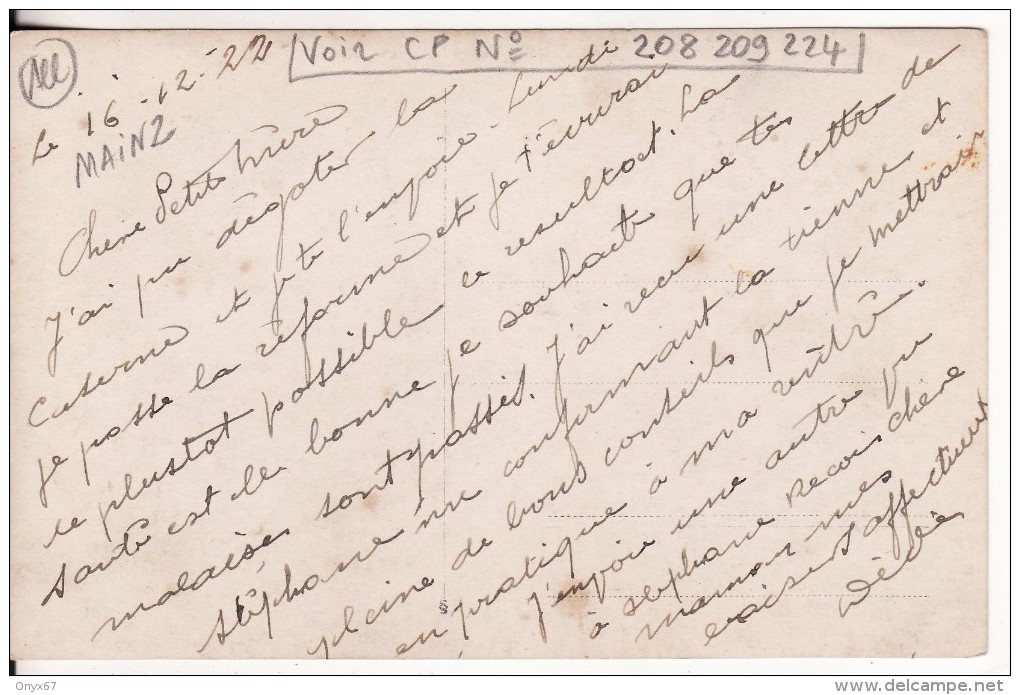 All
Voir CP N° 208 209 224
Le 16-12-22
MAINZ
Chère Petite Mère
J'ai pu dégoter la
caserne et je te l'envoie - Lundi
je passe la réforme et je t'écrirai
le plustot possible le resultat. La
santé est bonne je souhaite que tes
malaises sont passés. J'ai reçu une lettre de
Stéphane me confirmant la tienne et
pleine de bons conseils que je mettrai
en pratique à ma rentrée.
J'envoie une autre vu
à Stéphane Recois chère
maman mes
baisers affectueux
Dédé
Onyx67
delcampe.net